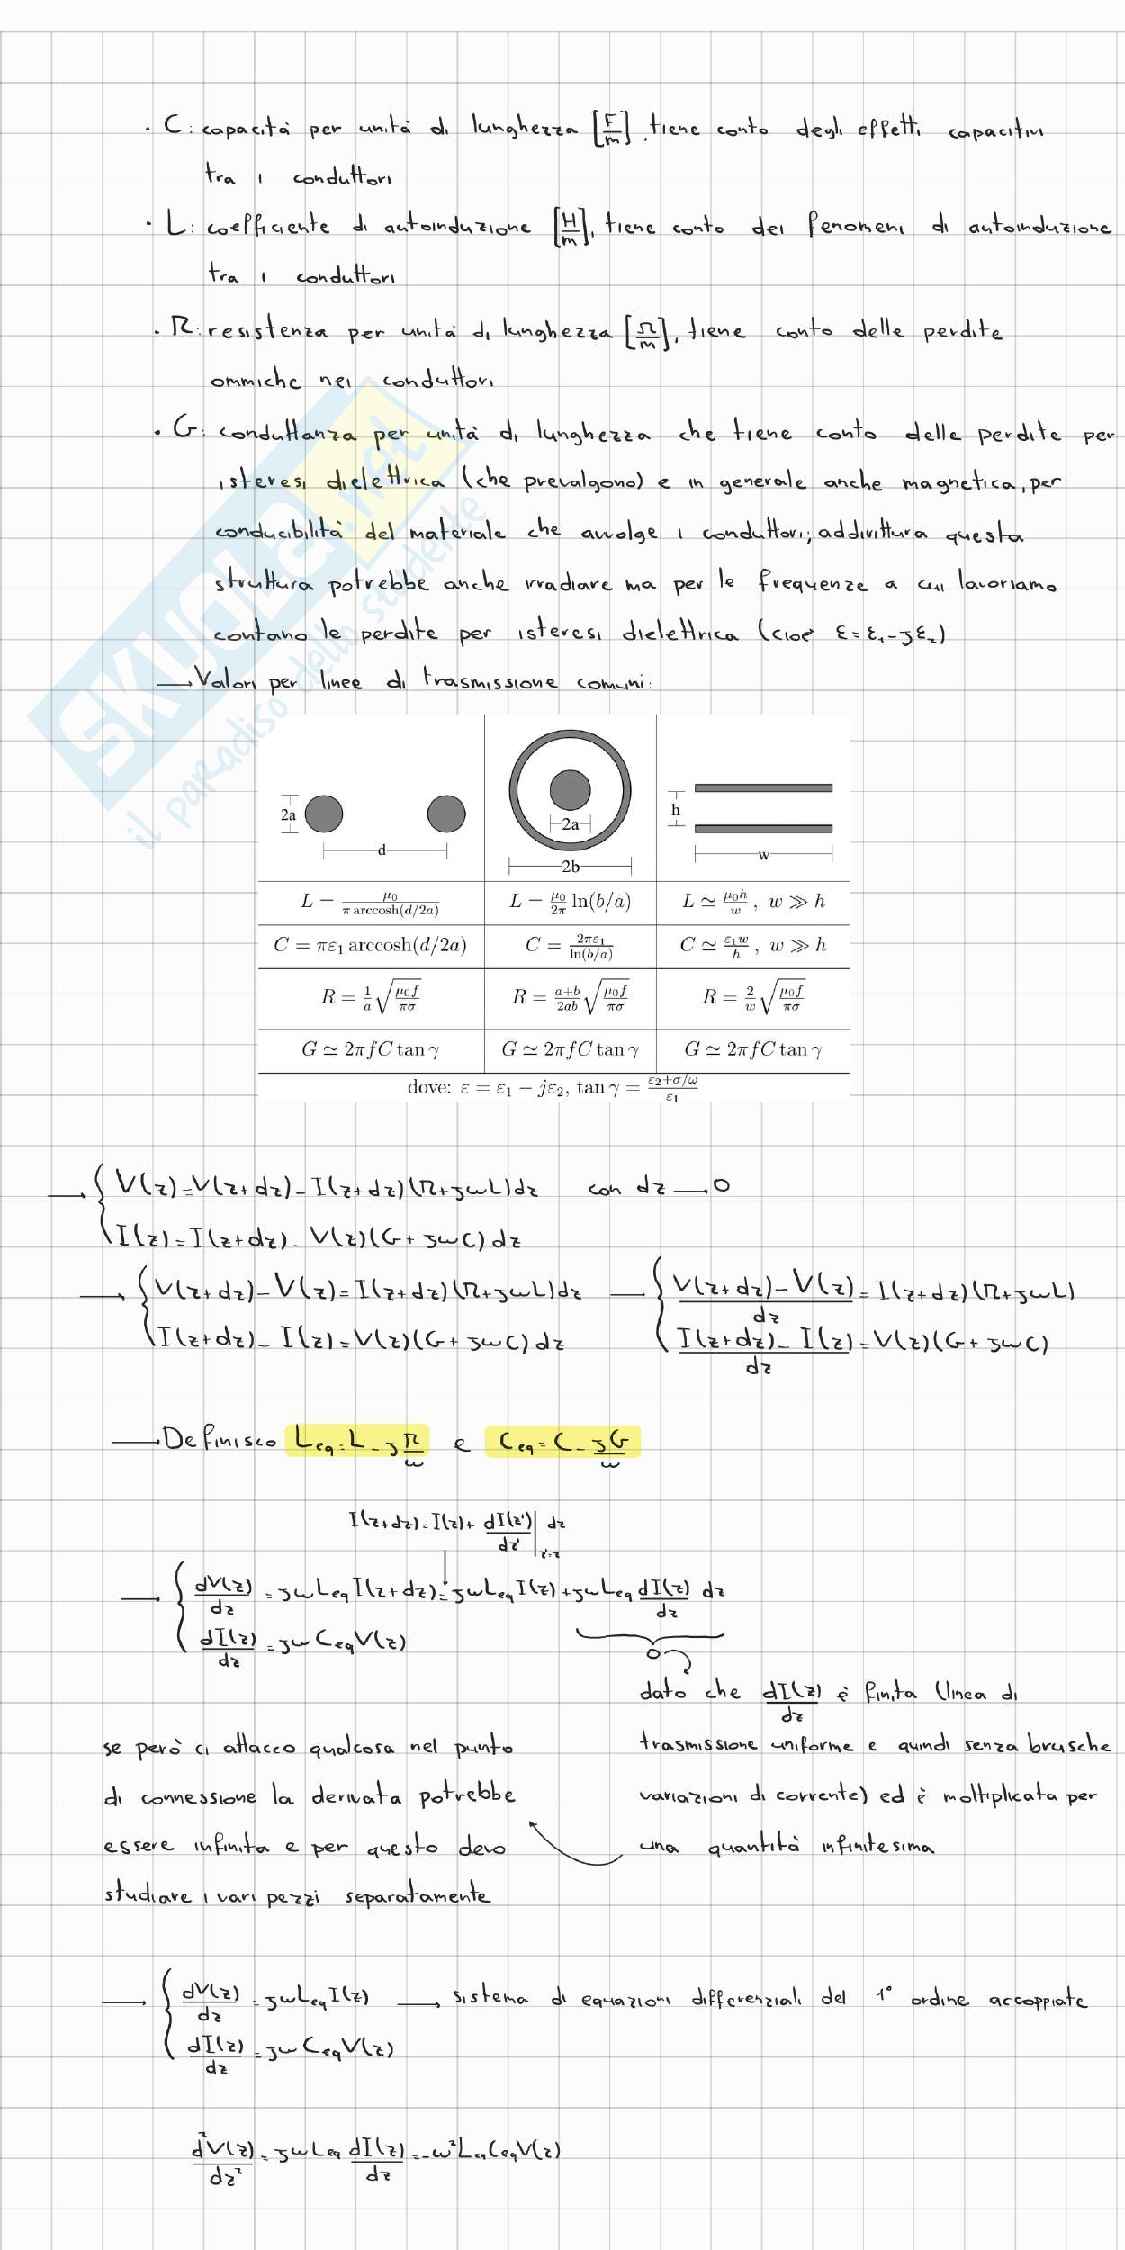 · C: capacità per unità di lunghezza [F/m], tiene conto degli effetti capacitivi
tra i conduttori
· L: coefficiente di autoinduzione [H/m], tiene conto dei fenomeni di autoinduzione
tra i conduttori
· R: resistenza per unità di lunghezza [Ω/m], tiene conto delle perdite
ommiche nei conduttori
· G: conduttanza per unità di lunghezza che tiene conto delle perdite per
isteresi dielettrica (che prevalgono) e in generale anche magnetica, per
conducibilità del materiale che avvolge i conduttori; addirittura questa
struttura potrebbe anche irradiare ma per le frequenze a cui lavoriamo
contano le perdite per isteresi dielettrica (cioè ε=ε₁-jε₂)
→ Valori per linee di trasmissione comuni:
SKUOLA.net
il paradiso dello studente
2a d 2a 2b h w
L = μ₀/(π arccosh(d/2a)) L = μ₀/2π ln(b/a) L ≃ μ₀h/w , w ≫ h
C = πε₁ arccosh(d/2a) C = 2πε₁/ln(b/a) C ≃ ε₁w/h , w ≫ h
R = 1/a √(μ₀f/πσ) R = (a+b)/2ab √(μ₀f/πσ) R = 2/w √(μ₀f/πσ)
G ≃ 2πfC tan γ G ≃ 2πfC tan γ G ≃ 2πfC tan γ
dove: ε = ε₁ − jε₂, tan γ = (ε₂+σ/ω)/ε₁
→ { V(z)=V(z+dz)-I(z+dz)(R+jωL)dz con dz → 0
I(z)=I(z+dz)-V(z)(G+jωC)dz
→ { V(z+dz)-V(z)=I(z+dz)(R+jωL)dz → { (V(z+dz)-V(z))/dz=I(z+dz)(R+jωL)
I(z+dz)-I(z)=V(z)(G+jωC)dz (I(z+dz)-I(z))/dz=V(z)(G+jωC)
→ Definisco Leq=L-jR/ω e Ceq=C-jG/ω
I(z+dz)=I(z)+dI(z')/dz'|z'=z dz
→ { dV(z)/dz=jωLeqI(z+dz)=jωLeqI(z)+jωLeq dI(z)/dz dz
dI(z)/dz=jωCeqV(z)
0
dato che dI(z)/dz è finita (linea di
trasmissione uniforme e quindi senza brusche
variazioni di corrente) ed è moltiplicata per
una quantità infinitesima
se però ci attacco qualcosa nel punto
di connessione la derivata potrebbe
essere infinita e per questo devo
studiare i vari pezzi separatamente
→ { dV(z)/dz=jωLeqI(z) → sistema di equazioni differenziali del 1° ordine accoppiate
dI(z)/dz=jωCeqV(z)
d²V(z)/dz²=jωLeq dI(z)/dz=-ω²LeqCeqV(z)